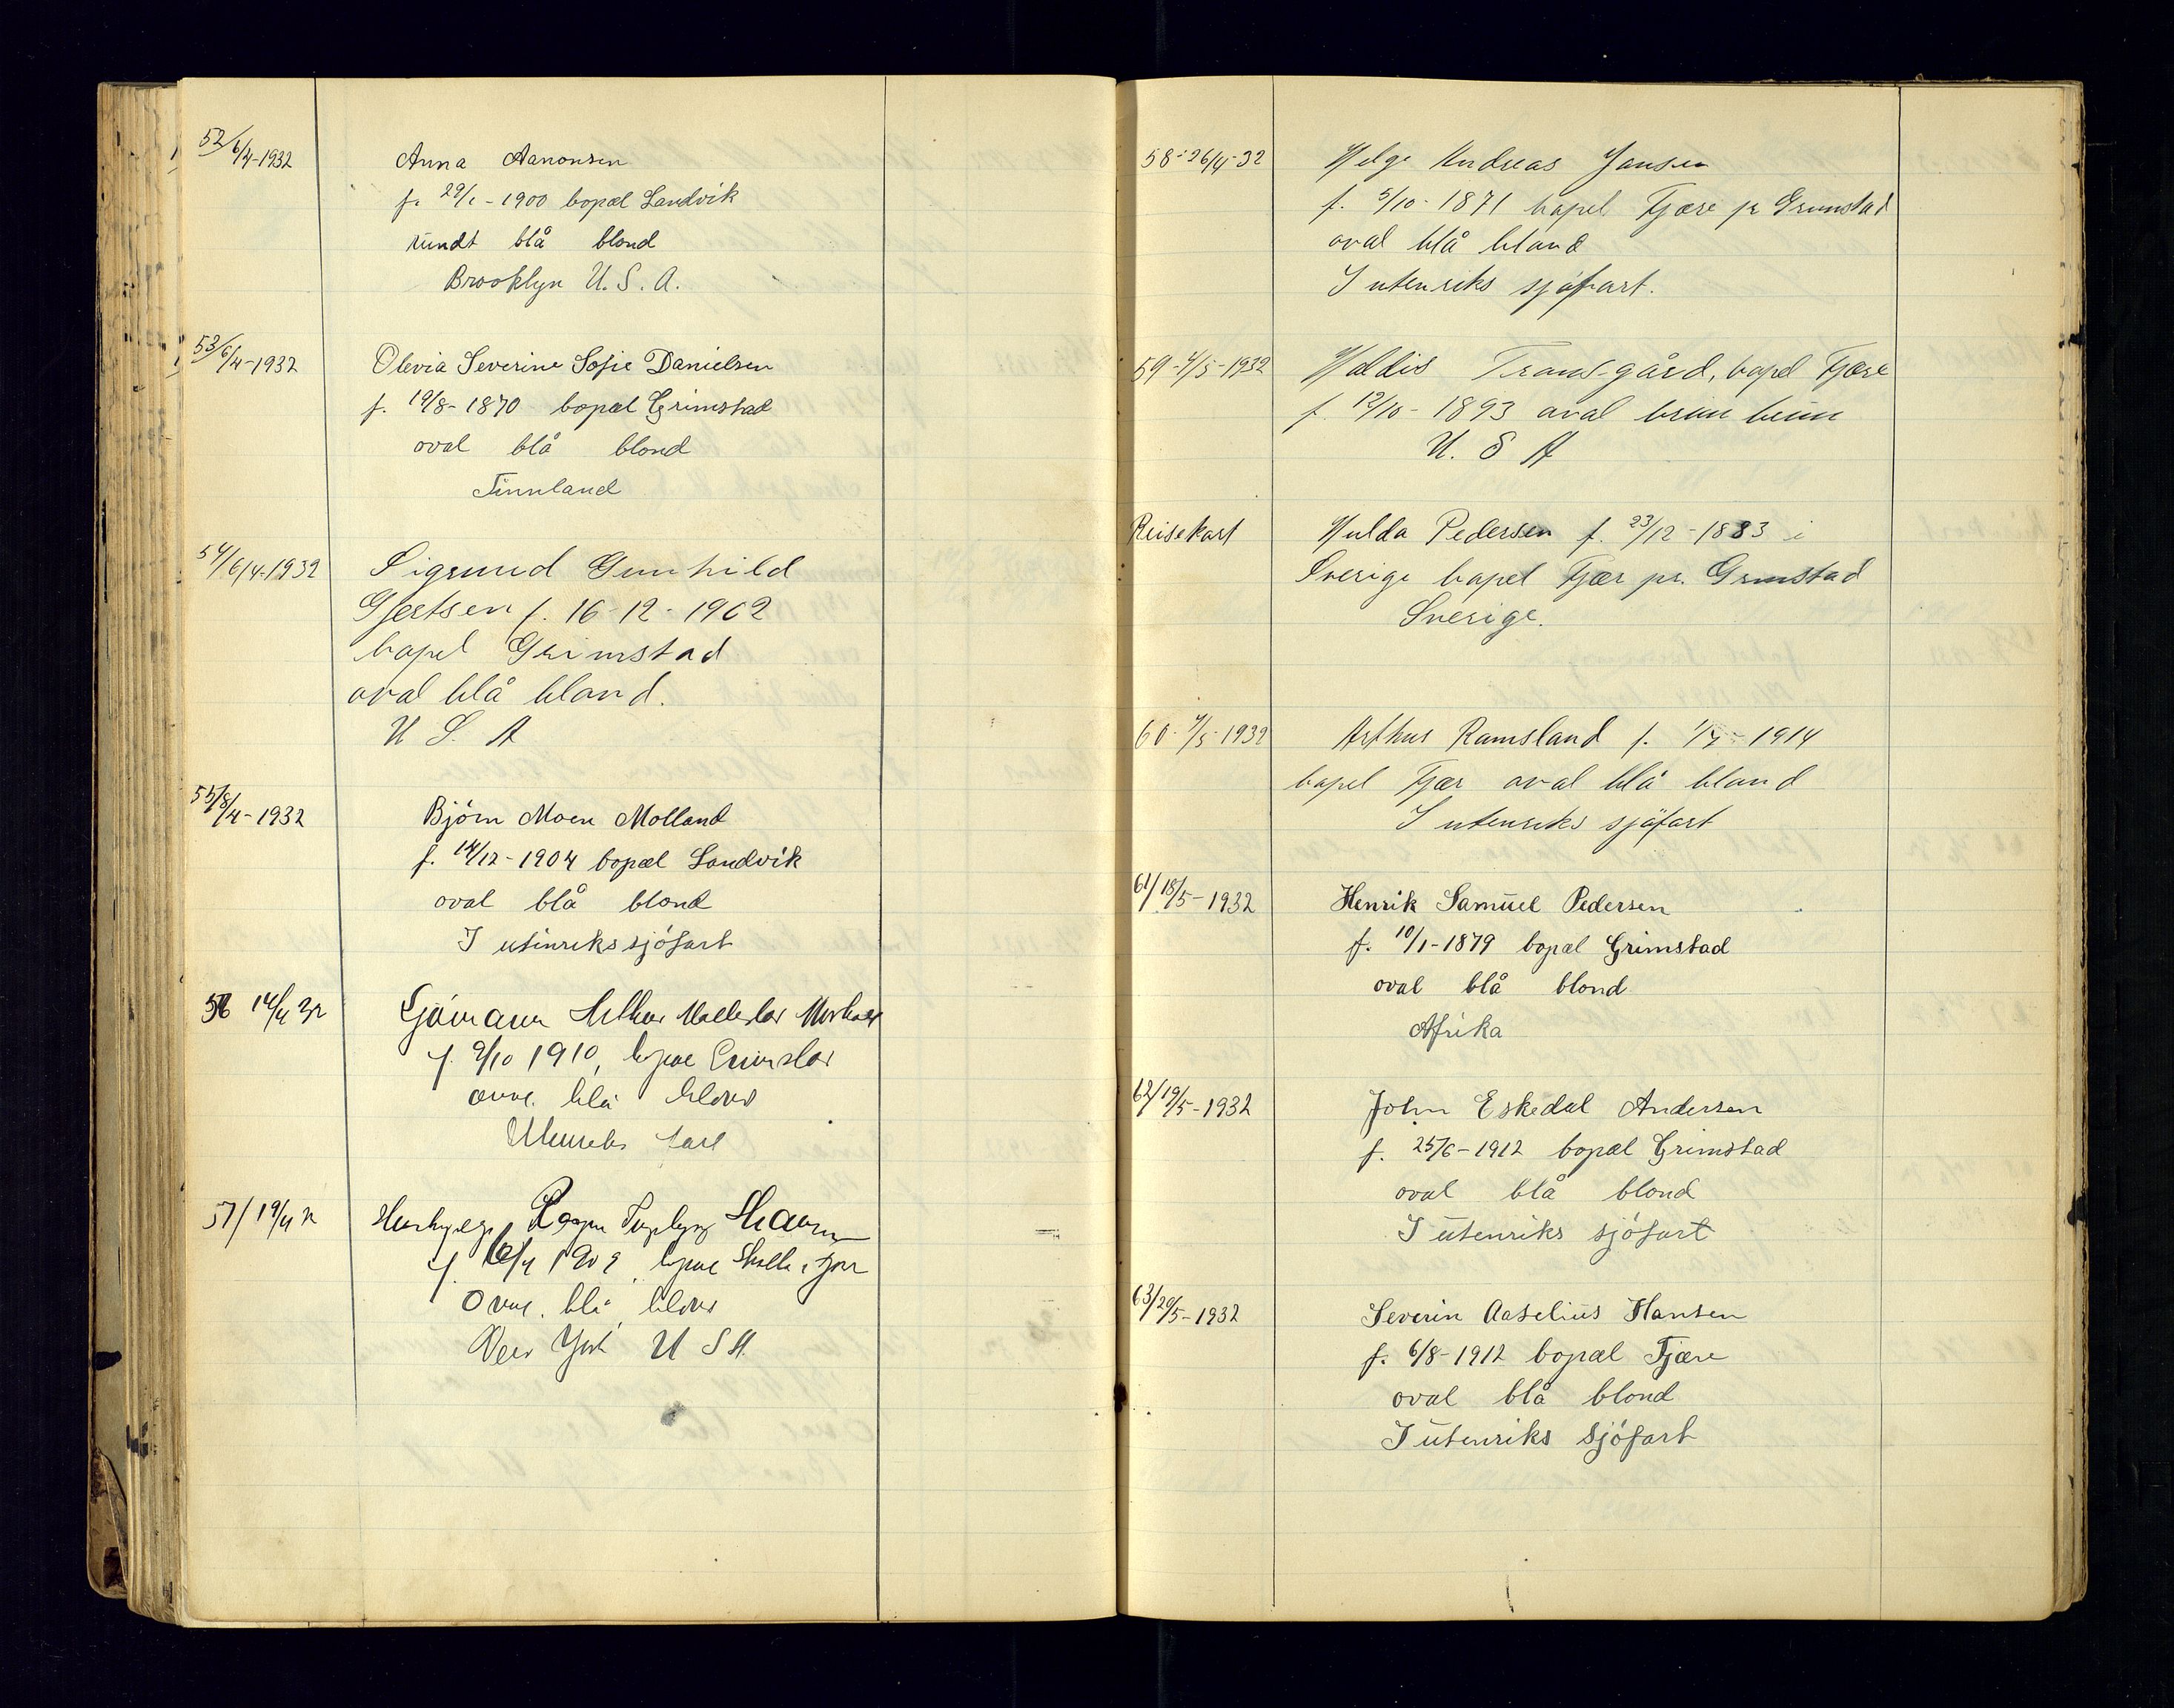 52/ 6/4-1932
Anna Aanonsen
f. 29/1-1900 bopæl Landvik
rundt blå blond
Brooklyn U.S.A.
53/ 6/4-1932
Olevia Severine Sofie Danielsen
f. 19/8-1870 bopæl Grimstad
oval blå blond
Finnland
54/ 6/4-1932
Sigrund Gunhild
Gjertsen f. 16-12-1902
bopel Grimstad
oval blå blond.
U S. A
55/ 8/4-1932
Björn Moen Molland
f. 14/12-1904 bopæl Landvik
oval blå blond
I utinrikssjófart
56 14/4 32
Sjömann Arthur
f. 9/10 1910, bopæl Grimstad
oval. blå blond
Utenriks fart
57/ 19/4 32
f. 1909, bopæl i Fjære
Oval. blå blond
New York U S A.
58-26/4-32
Helge Andreas Jansen
f. 5/10-1871 bopel Fjære pr Grimstad
oval blå blond
I utenriks sjøfart.
59-4/5-1932
Haldis Transgård, bopel Fjære
f. 12/10-1893 oval brun brun
U. S A
Reisekort
Hulda Pedersen f. 23/12-1883 i
Sverige bopel Fjær pr. Grimstad
Sverige.
60-4/5-1932
Arthur Ramsland f. 1914
bopel Fjær oval blå blond
I utenriks sjøfart
61/ 18/5-1932
Henrik Samuel Pedersen
f. 10/1-1879 bopæl Grimstad
oval blå blond
Afrika
62/ 19/5-1932
John Eskedal Andersen
f. 25/6-1912 bopæl Grimstad
oval blå blond
I utenriks sjófart
63/ 20/5-1932
Severin Aaselius Hansen
f. 6/8-1912 bopæl Fjære
oval blå blond
I utenriks sjófart